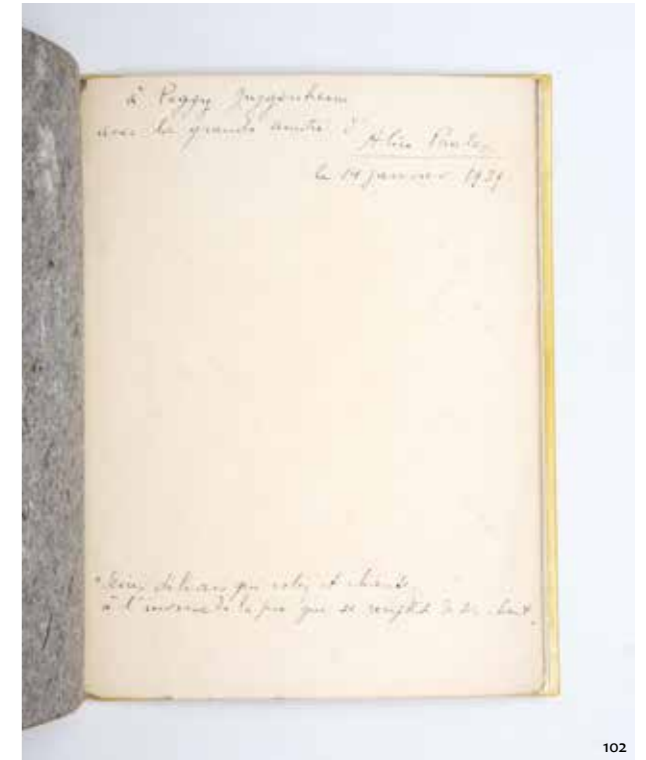 à Peggy Guggenheim
avec la grande amitié d'
Alice Paalen
le 14 janvier 1939
et chante
à l'inverse de la que se remplit de son chant.
102